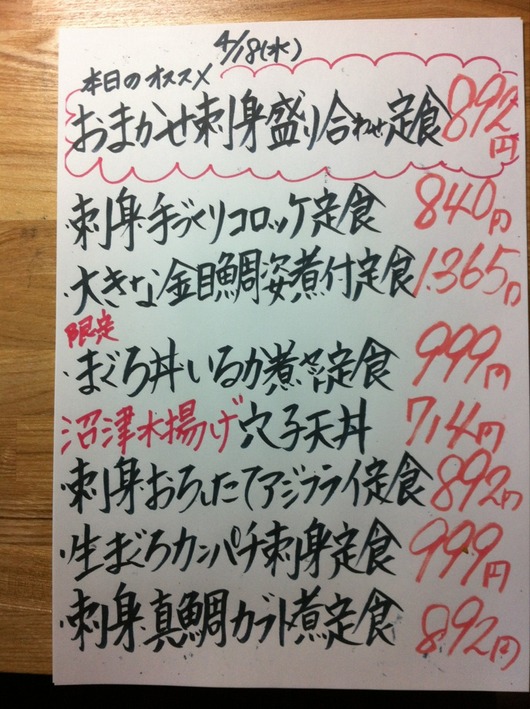 4/18(水)
本日のオススメ
おまかせ刺身盛り合わせ定食 892円
・刺身手づくりコロッケ定食 840円
・大きな金目鯛姿煮付定食 1.365円
限定
・まぐろ丼いるか煮セット定食 999円
沼津水揚げ穴子天丼 714円
・刺身おろしたてアジフライ定食 892円
・生まぐろカンパチ刺身定食 999円
・刺身真鯛カブト煮定食 892円